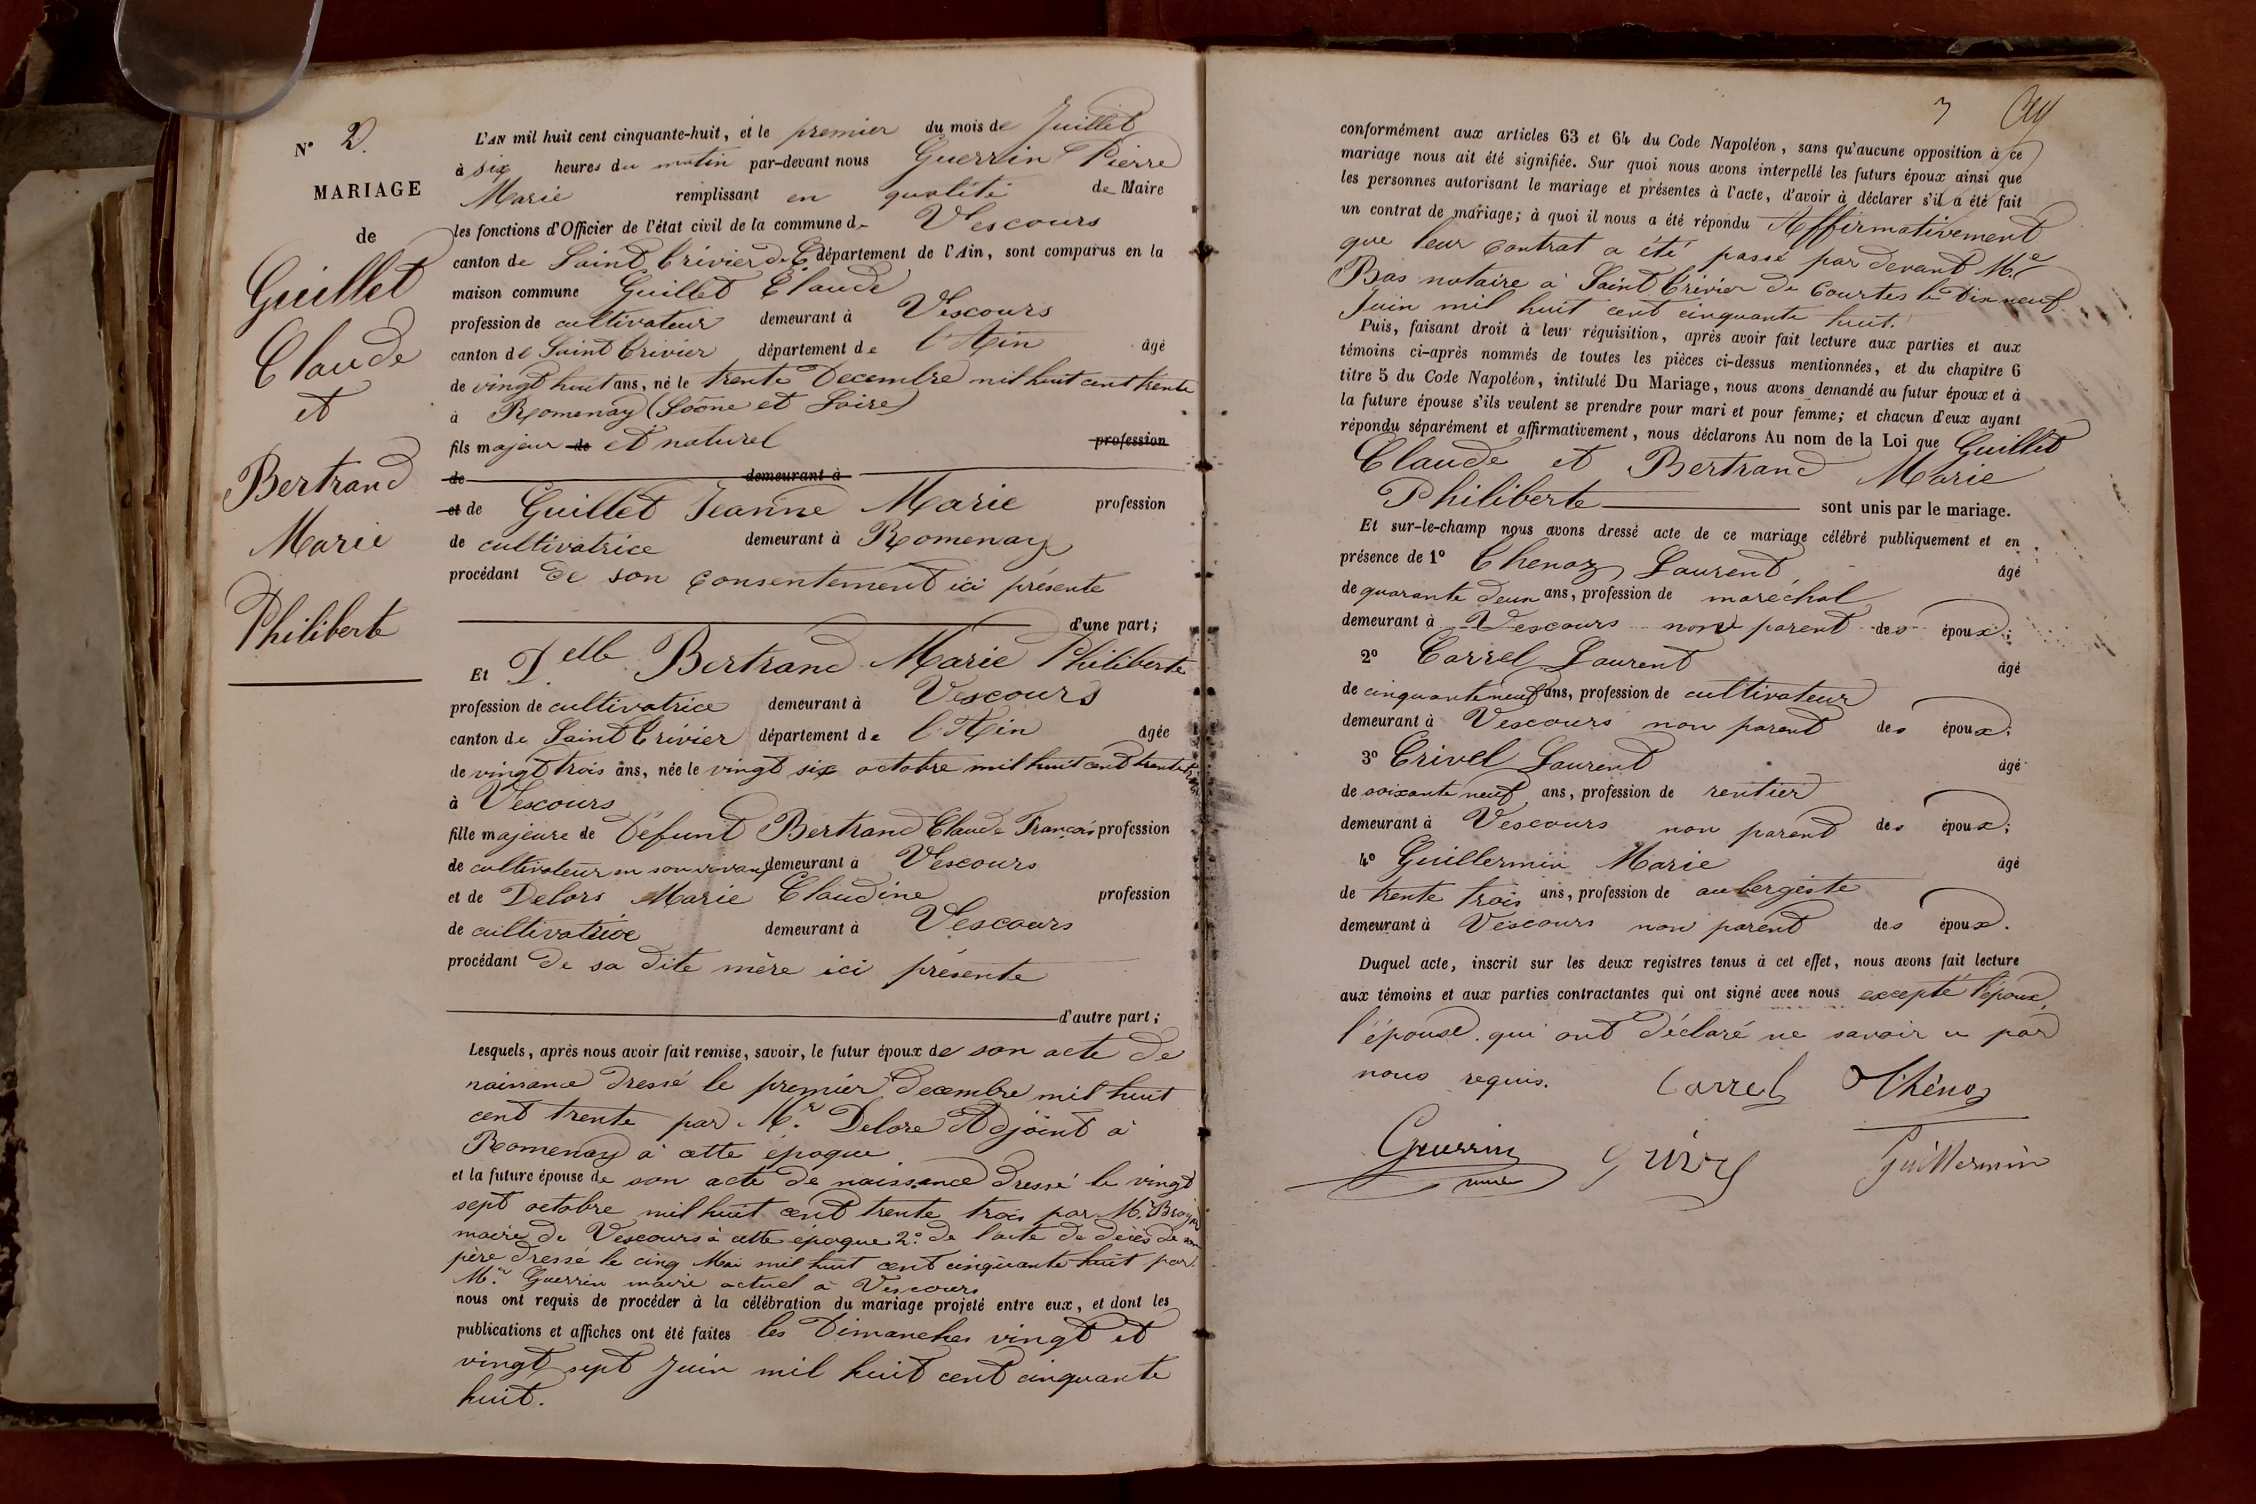 N° 2.
MARIAGE
de
Guillet
Claude
et
Bertrand
Marie
Philiberte
L'AN mil huit cent cinquante-huit, et le premier du mois de Juillet
à six heures du matin par-devant nous Guerrin Pierre
Marie remplissant en qualité de Maire
les fonctions d'Officier de l'état civil de la commune de Vescours
canton de Saint Trivier de C département de l'Ain, sont comparus en la
maison commune Guillet Claude
profession de cultivateur demeurant à Vescours
canton de Saint Trivier département de l'Ain âgé
de vingt huit ans, né le trente Decembre mil huit cent trente
à Romenay (Saône et Loire)
fils majeur de et naturel profession
de demeurant à
et de Guillet Jeanne Marie profession
de cultivatrice demeurant à Romenay
procédant de son consentement ici présente
d'une part;
Et Delle Bertrand Marie Philiberte
profession de cultivatrice demeurant à Vescours
canton de Saint Trivier département de l'Ain âgée
de vingt trois ans, née le vingt six octobre mil huit cent trente
à Vescours
fille majeure de Défunt Bertrand Claude François profession
de cultivateur en son vivant demeurant à Vescours
et de Delors Marie Claudine profession
de cultivatrice demeurant à Vescours
procédant de sa dite mère ici présente
d'autre part;
Lesquels, après nous avoir fait remise, savoir, le futur époux de son acte de
naissance dressé le premier Decembre mil huit
cent trente par Mr. Delore Adjoint à
Romenay à cette époque
et la future épouse de son acte de naissance dressé le vingt
sept octobre mil huit cent trente trois par Mr
maire de Vescours à cette époque 2° de l'acte de décès de son
père dressé le cinq Mai mil huit cent cinquante huit par
Mr. Guerrin maire actuel à Vescours
nous ont requis de procéder à la célébration du mariage projeté entre eux, et dont les
publications et affiches ont été faites les Dimanches vingt et
vingt sept Juin mil huit cent cinquante
huit.
3
conformément aux articles 63 et 64 du Code Napoléon, sans qu'aucune opposition à ce
mariage nous ait été signifiée. Sur quoi nous avons interpellé les futurs époux ainsi que
les personnes autorisant le mariage et présentes à l'acte, d'avoir à déclarer s'il a été fait
un contrat de mariage; à quoi il nous a été répondu Affirmativement
que leur contrat a été passé par devant Me
Bas notaire à Saint Trivier de Courtes le Dix neuf
Juin mil huit cent cinquante huit.
Puis, faisant droit à leur réquisition, après avoir fait lecture aux parties et aux
témoins ci-après nommés de toutes les pièces ci-dessus mentionnées, et du chapitre 6
titre 5 du Code Napoléon, intitulé Du Mariage, nous avons demandé au futur époux et à
la future épouse s'ils veulent se prendre pour mari et pour femme; et chacun d'eux ayant
répondu séparément et affirmativement, nous déclarons Au nom de la Loi que Guillet
Claude et Bertrand Marie
Philiberte sont unis par le mariage.
Et sur-le-champ nous avons dressé acte de ce mariage célébré publiquement et en
présence de 1° Chenoz Laurent âgé
de quarante deux ans, profession de maréchal
demeurant à Vescours non parent des époux;
2° Carrel Laurent âgé
de cinquante neuf ans, profession de cultivateur
demeurant à Vescours non parent des époux;
3° Grivel Laurent âgé
de soixante neuf ans, profession de rentier
demeurant à Vescours non parent des époux;
4° Guillermin Marie âgé
de trente trois ans, profession de aubergiste
demeurant à Vescours non parent des époux.
Duquel acte, inscrit sur les deux registres tenus à cet effet, nous avons fait lecture
aux témoins et aux parties contractantes qui ont signé avec nous excepté l'époux,
l'épouse qui ont déclaré ne savoir de par
nous requis. Carrel Chénoz
Guerrin Guillermin
maire